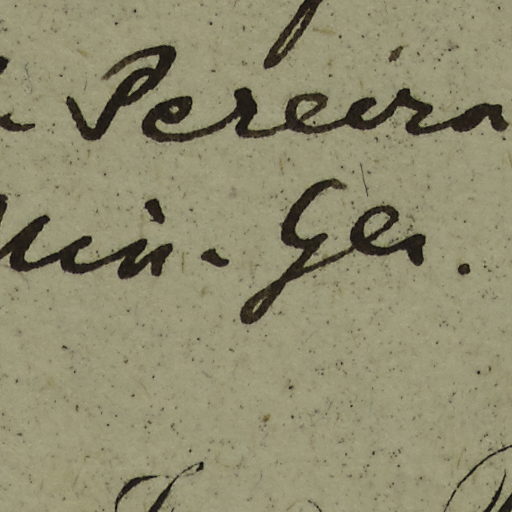 Pereira
Min. Ger.